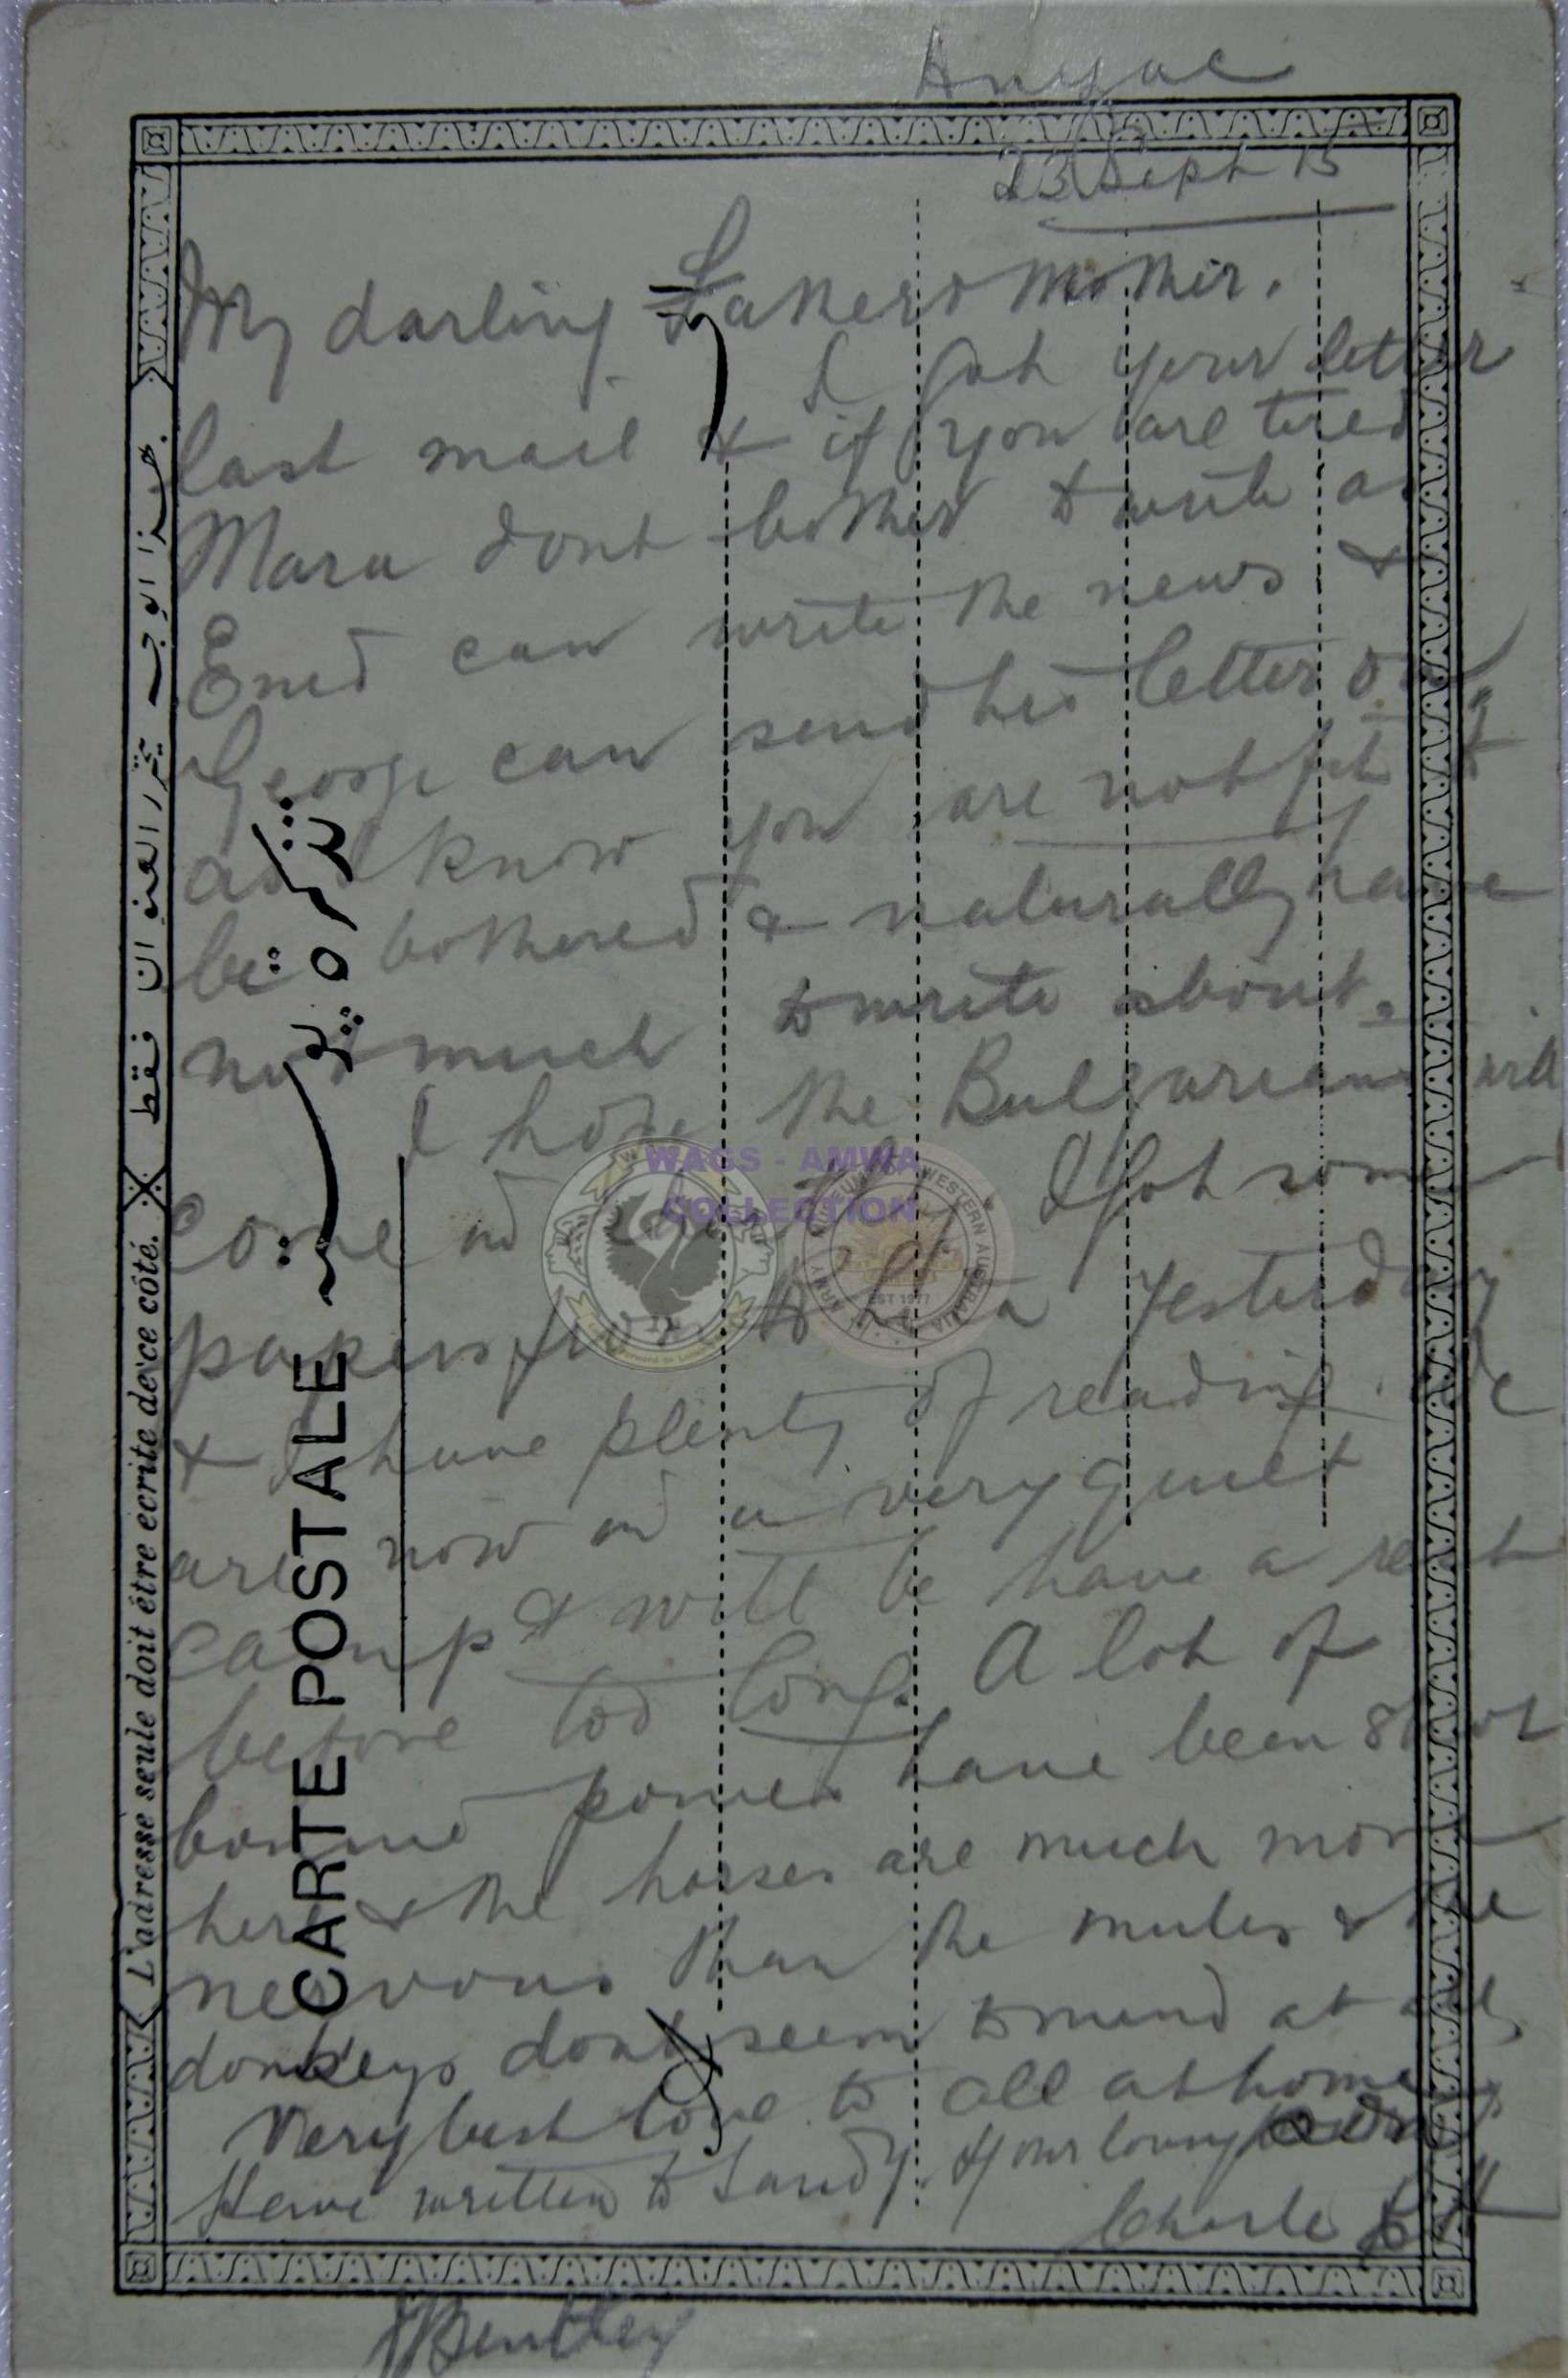 Anzac
23 Sept 15
My darling Father & Mother.
I got your letter
last mail & if you are tired
Mara dont bother to write as
Enid can write the news &
George can send his letter on,
as I know you are not fit to
be bothered & naturally have
not much to write about.
I hope the Bulgarians will
come in I got some
papers from yesterday
& I have plenty of reading. We
are now in a very quiet
camp & will be have a rest
before too long. A lot of
ponies have been shot
here & the horses are much more
nervous than the mules & the
donkeys dont seem to mind at all,
Very best love to all at home
Have written to Sandy. Your loving
Charle
Bentley
CARTE POSTALE
تذكرة بوستة
L'adresse seule doit être ecrite de ce côté.
فقط
WAGS - AMWA
COLLECTION
WESTERN AUSTRALIA
EST 1977